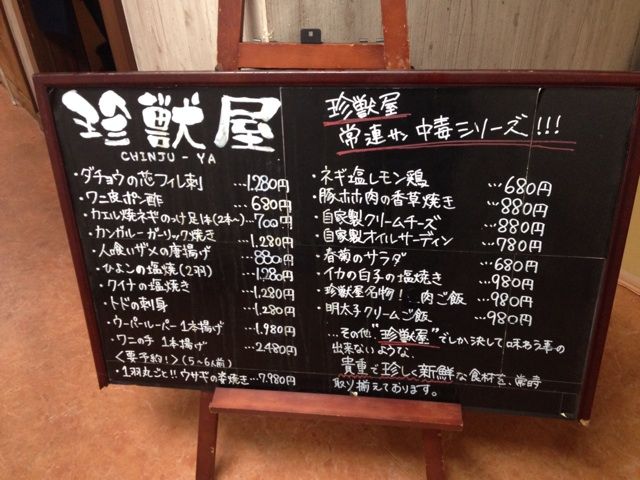 珍獣屋
CHINJU-YA
・ダチョウの芯フィレ刺 …1,280円
・ワニ皮ポン酢 …680円
・カエル焼ネギのっけ足1本(2本〜)…700円
・カンガルーガーリック焼き …1,280円
・人喰いザメの唐揚げ …880円
・ひよこの塩焼(2羽) …1,280円
・ワイナの塩焼き …1,280円
・トドの刺身 …1,280円
・ウーパールーパー1本揚げ …1,980円
・ワニの手 1本揚げ …2,480円
<要予約!>(5〜6人前)
・1羽丸ごと!!ウサギの姿焼き…7,980円
珍獣屋
常連サン中毒シリーズ!!!
・ネギ塩レモン鶏 …680円
・豚ホホ肉の香草焼き …880円
・自家製クリームチーズ …880円
・自家製オイルサーディン …780円
・春菊のサラダ …680円
・イカの白子の塩焼き …980円
・珍獣屋名物!肉ご飯 …980円
・明太子クリームご飯 …980円
…その他"珍獣屋"でしか決して味わう事の
出来ないような、
貴重で珍しく新鮮な食材を、常時
取り揃えております。